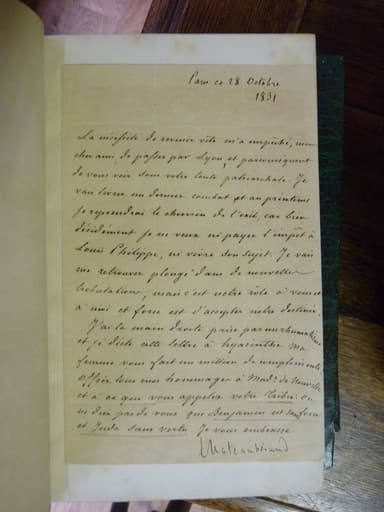 Paris ce 28 Octobre
1831
La nécessité de revenir vite m'a empêché, mon
cher ami, de passer par Lyon, et par conséquent
de vous voir sous votre tente patriarchale. Je
vais livrer un dernier combat et au printems
je reprendrai le chemin de l'exil, car bien
décidément je ne veux ni payer l'impôt à
Louis Philippe, ni vivre son sujet. Je vais
me retrouver plongé dans de nouvelles
tribulations, mais c'est notre rôte à vous et
à moi et force est d'accepter notre destinée.
J'ai la main droite prise par un rhumatisme
et je dicte cette lettre à hyacinthe. Ma
femme vous fait un million de complimens
offrez tous mes hommages à Made de
et à ce que vous appelez votre Tribu: on
ne dira pas de vous que Benjamin est sans force
et Juda sans vertu. Je vous embrasse
Chateaubriand